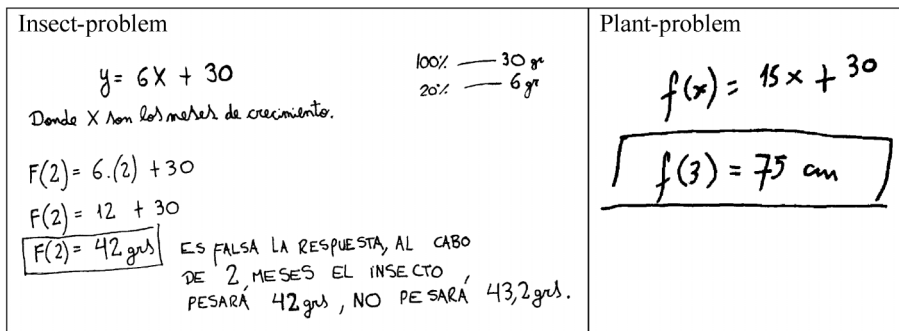 Insect-problem
y = 6X + 30
100% — 30 gr
20% — 6 gr
Donde X son los meses de crecimiento.
F(2) = 6.(2) + 30
F(2) = 12 + 30
F(2) = 42 grs
ES FALSA LA RESPUESTA, AL CABO
DE 2, MESES EL INSECTO
PESARÁ 42 grs, NO PESARÁ 43,2 grs.
Plant-problem
f(x) = 15x + 30
f(3) = 75 cm